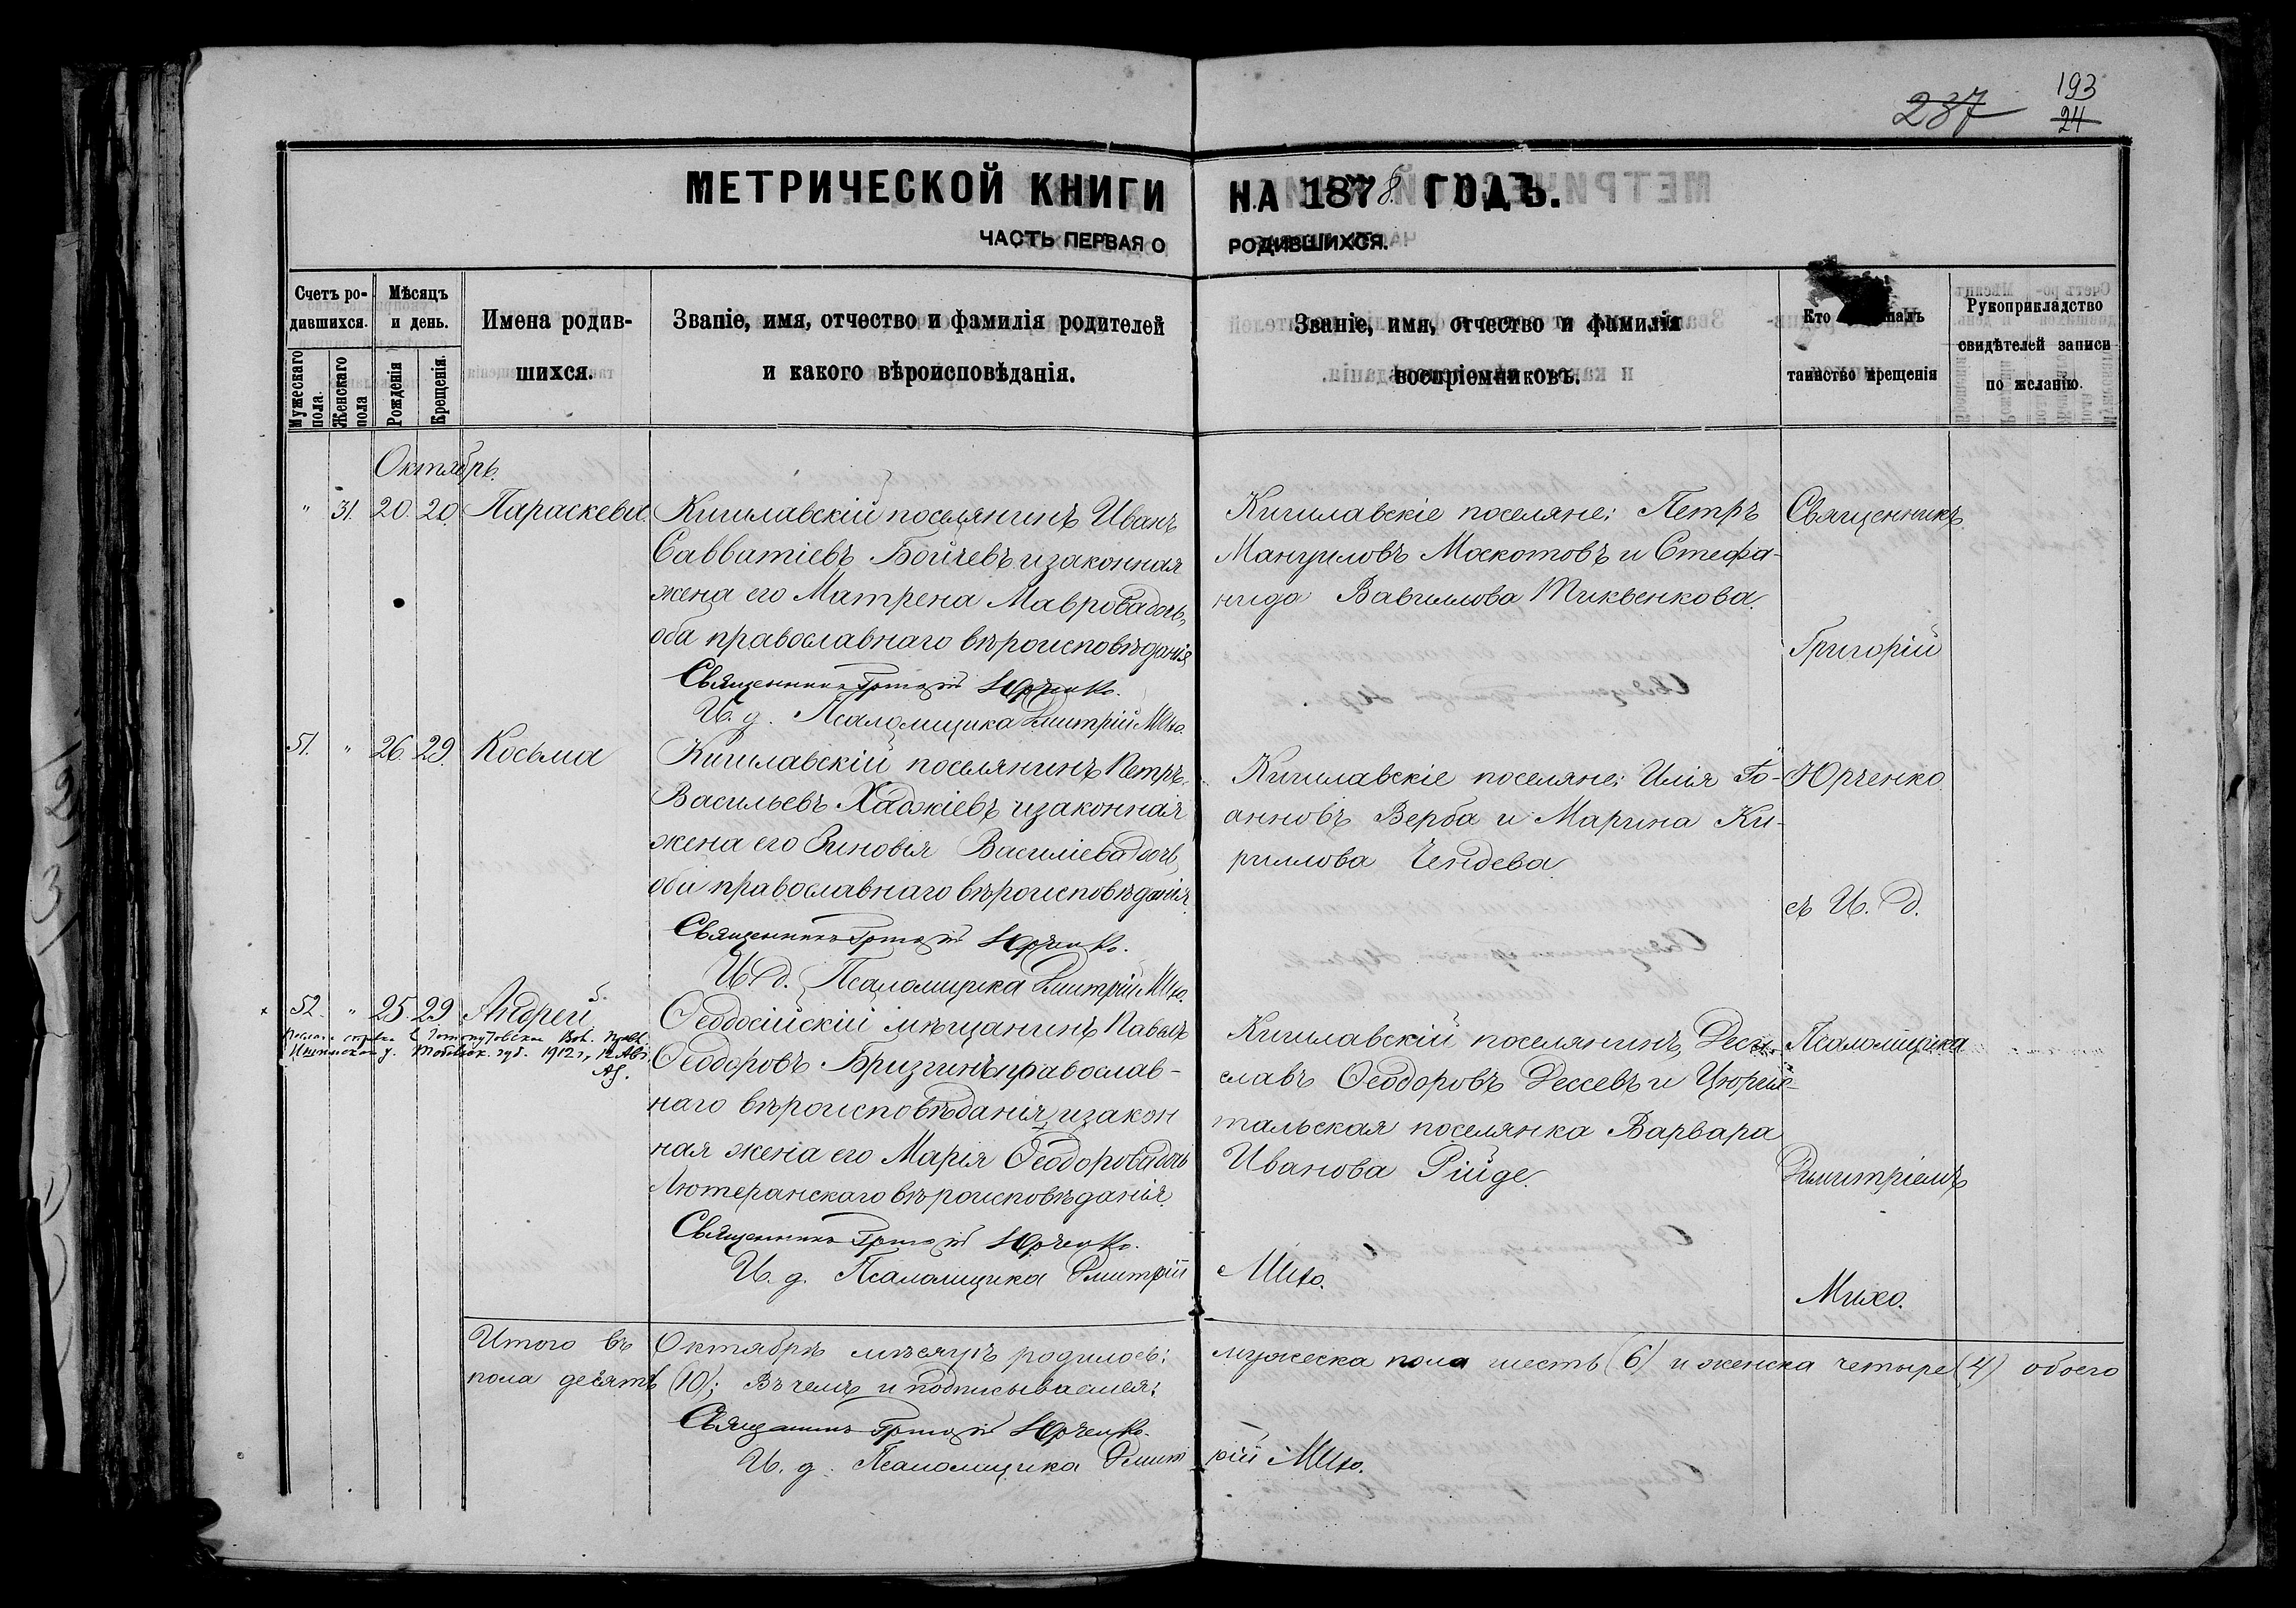 237
193
24
МЕТРИЧЕСКОЙ КНИГИ НА 1878. ГОДЪ.
ЧАСТЬ ПЕРВАЯ О РОДИВШИХСЯ.
Счетъ ро-
дившихся.
Мужескаго пола.
Женскаго пола
Мѣсяцъ
и день.
Рожденія
Крещенія.
Имена родив-
шихся.
Званіе, имя, отчество и фамилія родителей
и какого вѣроисповѣданія.
Званіе, имя, отчество и фамилія
воспріемниковъ.
Кто
таинство крещенія
Рукоприкладство
свидѣтелей записи
по желанію.
Октябрь.
" 31. 20. 20. Параскева.
Кишлавскій поселянинъ Иванъ
Савватіевъ Бойчевъ и законная
жена его Матрена Маврова дочь,
оба православнаго вѣроисповѣданія
Священникъ Григорій Юрченко.
И. д. Псаломщика Дмитрій Михо.
Кишлавскіе поселяне: Петръ
Мануиловъ Москотовъ и Стефа-
нида Вавилова Тиквенкова.
51. " 26. 29. Косьма
Кишлавскій поселянинъ Петръ
Васильевъ Хаджіевъ и законная
жена его Зиновія Василіева дочь,
оба православнаго вѣроисповѣданія.
Священникъ Григорій Юрченко.
И. д. Псаломщика Дмитрій Михо.
Кишлавскіе поселяне: Илія Іо-
анновъ Верба и Марина Ки-
риллова Чендева
52. " 25. 29 Андрей
1912 г, 12 Авг.
Ѳеодосійскій мѣщанинъ Павелъ
Ѳеодоровъ Бризгинъ православ-
наго вѣроисповѣданія и закон
ная жена его Марія Ѳеодорова дочь
Лютеранскаго вѣроисповѣданія.
Священникъ Григорій Юрченко.
И. д. Псаломщика Дмитрій Михо.
Кишлавскій поселянинъ, Деси-
славъ Ѳеодоровъ Дессевъ и Цюрих-
тальская поселянка Варвара
Иванова Рійде.
Священникъ
Григорій
Юрченко
съ И. д.
Псаломщика
Димитріемъ
Михо.
Итого въ Октябрѣ мѣсяцѣ родилось: мужеска пола шесть (6) и женска четыре (4) обоего
пола десять (10); Въ чемъ и подписываемся:
Священникъ Григорій Юрченко.
И. д. Псаломщика Дмитрій Михо.